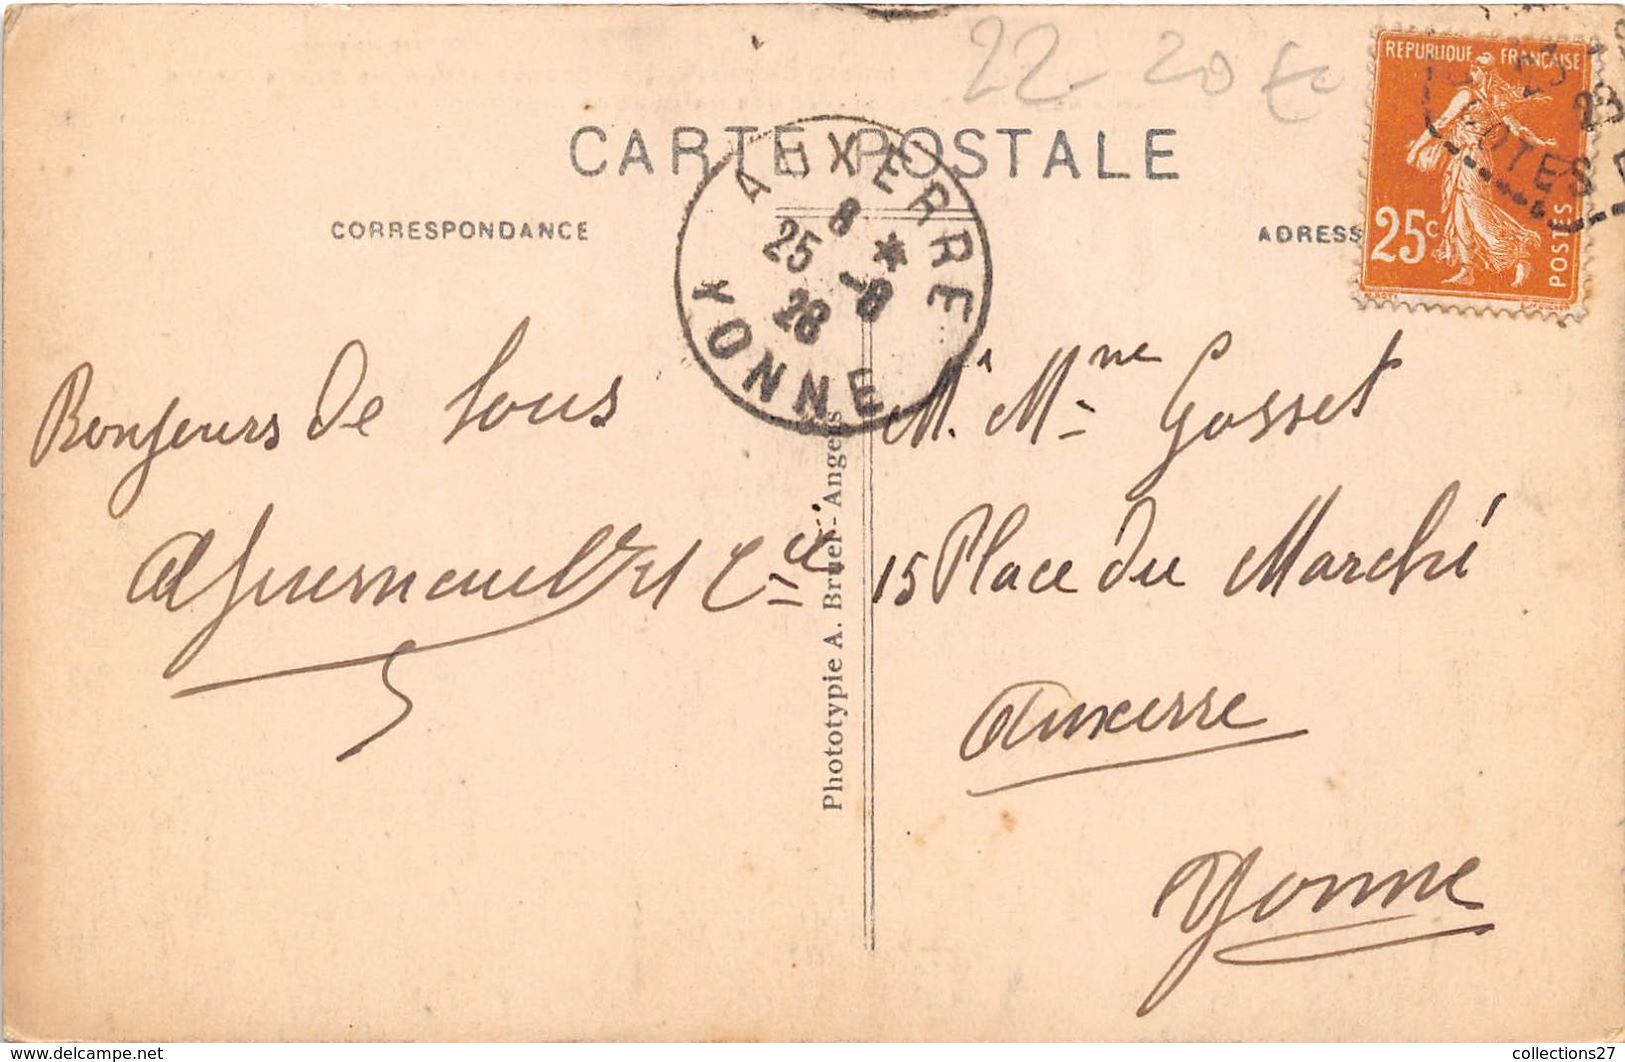 22- 20 €
CARTE POSTALE
CORRESPONDANCE
ADRESS
REPUBLIQUE FRANÇAISE
25c
POSTES
AUXERRE
8
25 -8
28
YONNE
Bonjours de tous
et Cie
Phototypie A. Bruel - Angers
M. Mme Gosset
15 Place du Marché
Auxerre
Yonne
www.delcampe.net
collections27